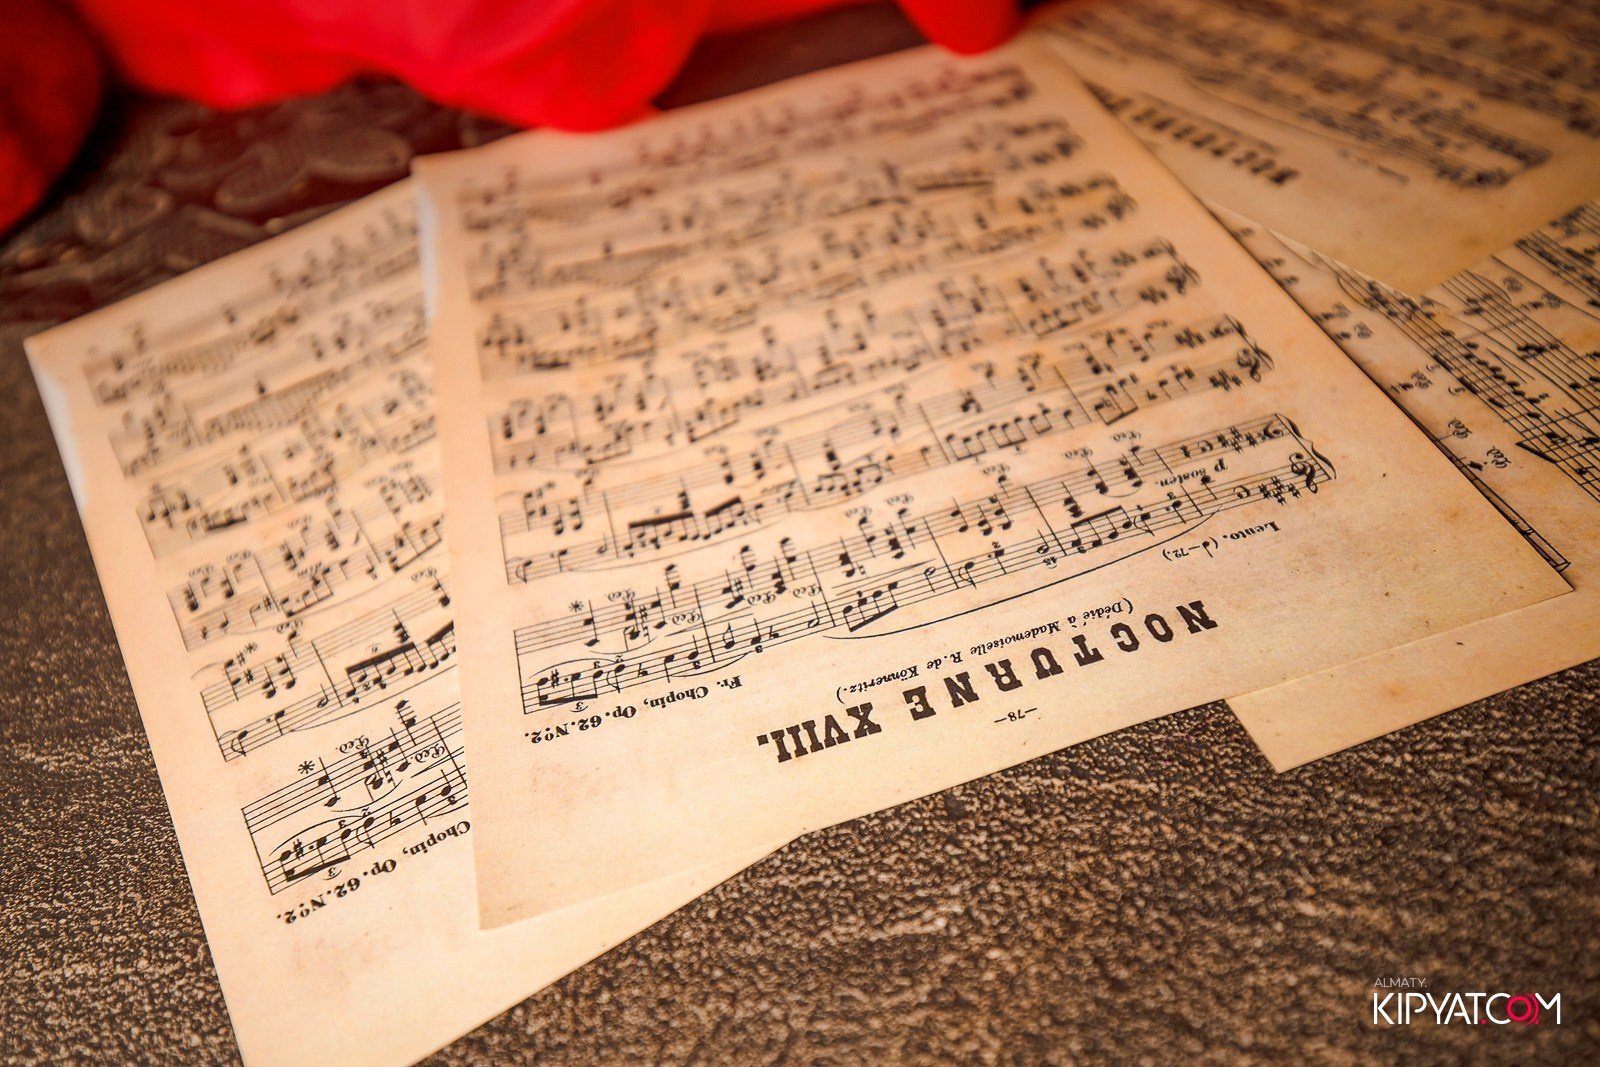 —78—
NOCTURNE XVIII.
(Dédié à Mademoiselle R. de Könneritz.)
Fr. Chopin, Op. 62. Nº 2.
Lento. (♩=72.)
p sosten.
Chopin, Op. 62. Nº 2.
ALMATY.
KIPYAT.COM